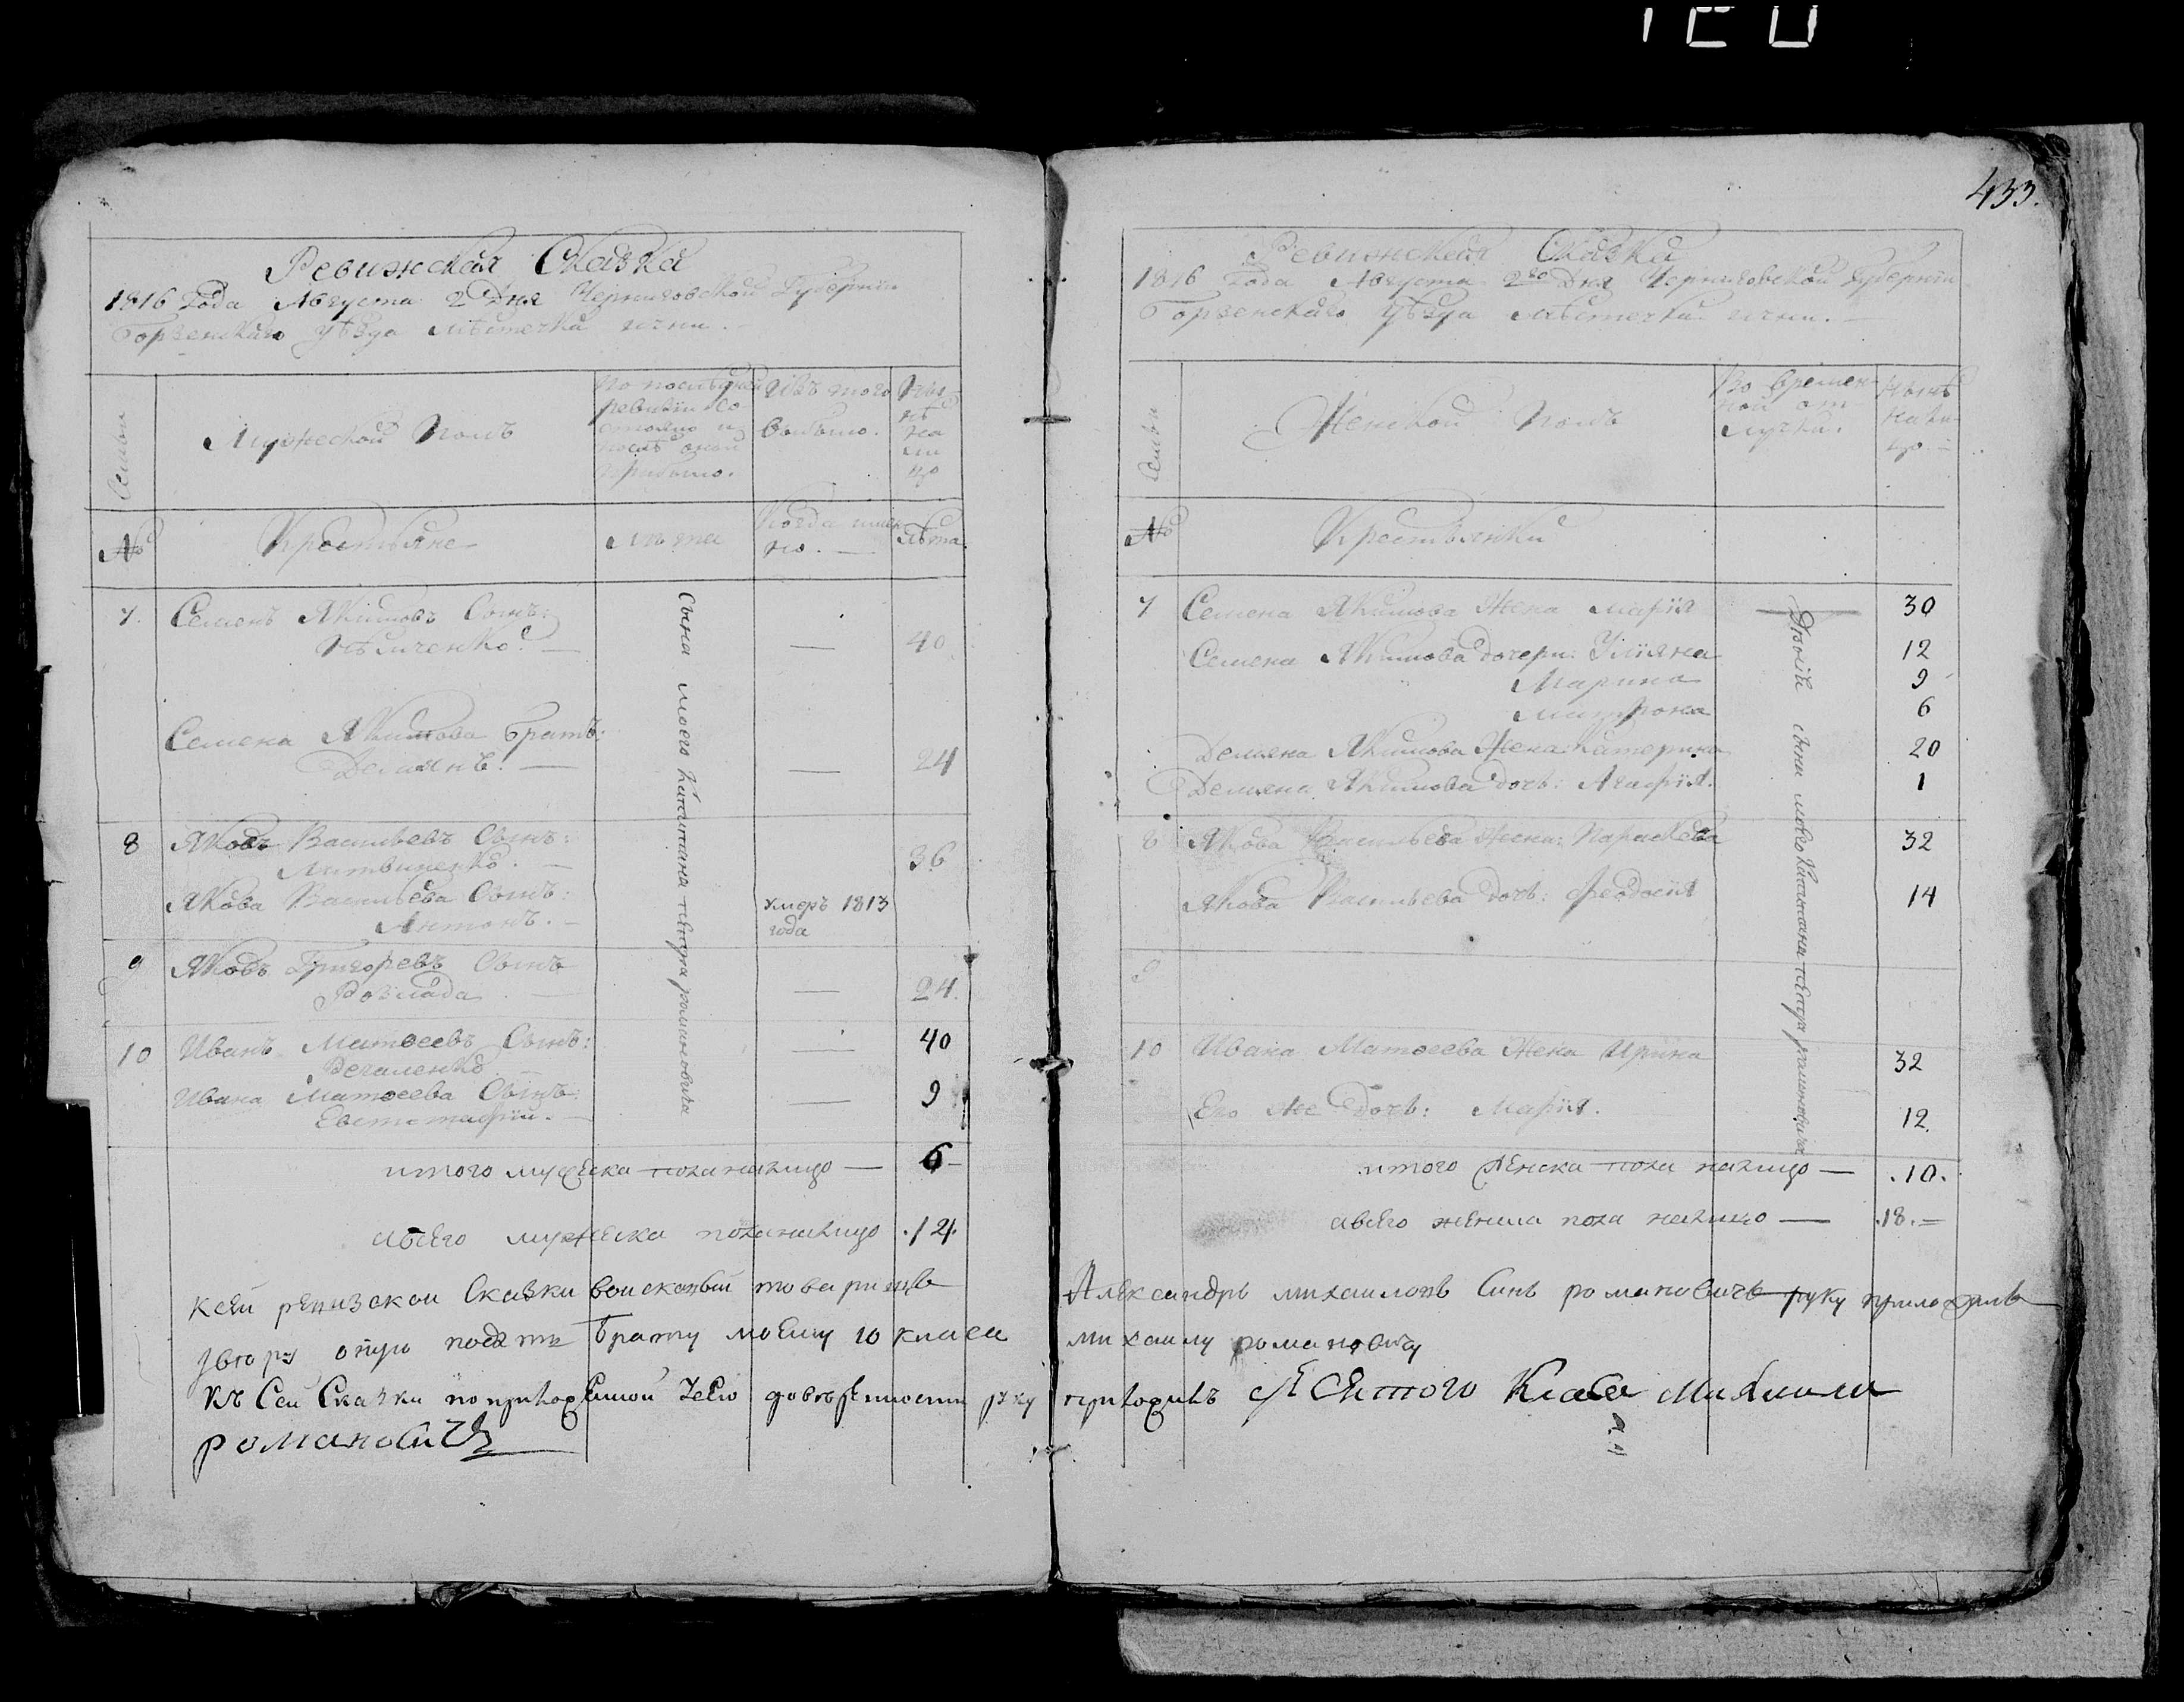 Ревижская Сказка
1816 Года Августа 2 Дня Черниговской Губернiи
Борзенскаго уѣзда мѣстечка ични.
Семьи
Мужеской Полъ
По последней
ревизiи со
стояло и
после оной
прибыло.
Изъ того
выбыло.
Ны
нѣ
на
ли
цо
№
Крестьяне
Лѣта
Когда имен
но.
Лѣта
7. Семенъ Якимовъ Сынъ:
40
Семена Якимова братъ:
Демянъ. 24
8 Яковъ Васильевъ Сынъ:
Литвиненко. 36
Якова Васильева Сынъ: умеръ 1813
Антонъ. года
9 Яковъ Григорьевъ Сынъ
Розлада 24.
10 Иванъ Матѳеевъ Сынъ: 40
Ивана Матѳеева Сынъ: 9
Евстатфiй.
Сына моего Капитана петра романовича
итого мужеска пола налицо 6
авсего мужеска пола налицо .12.
433.
Ревижская Сказка
1816 Года Августа 2го Дня Черниговской Губернiи
Борзенскаго Уѣзда мѣстечка ични.
Семьи
Женской Полъ
Во времен
ной от
лучки.
Нынѣ
нали
цо
№
Крестьянки
7 Семена Якимова Жена Марiя 30
Семена Якимова дочери: Улiяна 12
Марина 9
Матрона 6
Демяна Якимова Жена: Катерина 20
Демяна Якимова дочь: Агафiя. 1
8 Якова Васильева Жена: Параскева 32
Якова Васильева дочь: Феодосiя 14
9
10 Ивана Матѳеева Жена Ирина 32
Его же Дочь: Марiя. 12.
сына моего Капитана петра романовича
итого женска пола налицо .10.
авсего женска пола налицо .18.
Ксей ревизской Сказки воисковый товарищъ Александръ михаиловъ Синъ романовичъ руку приложилъ
оную подать брату моему 10 класа михаилу романовичу
Къ Сей Сказки доверенности руку приложилъ Десятого Класа Михаила
романовичъ